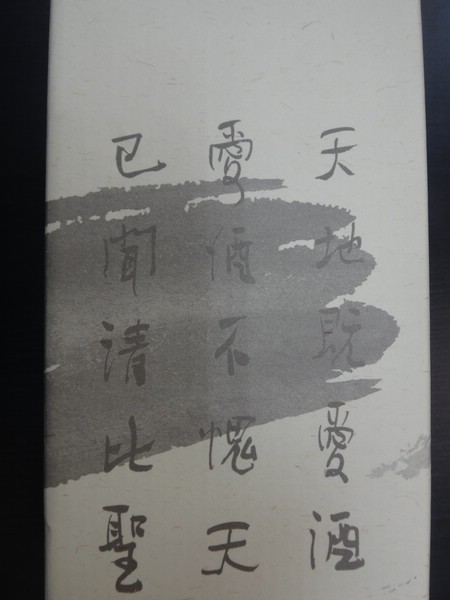 天地既愛酒
愛酒不愧天
已聞清比聖